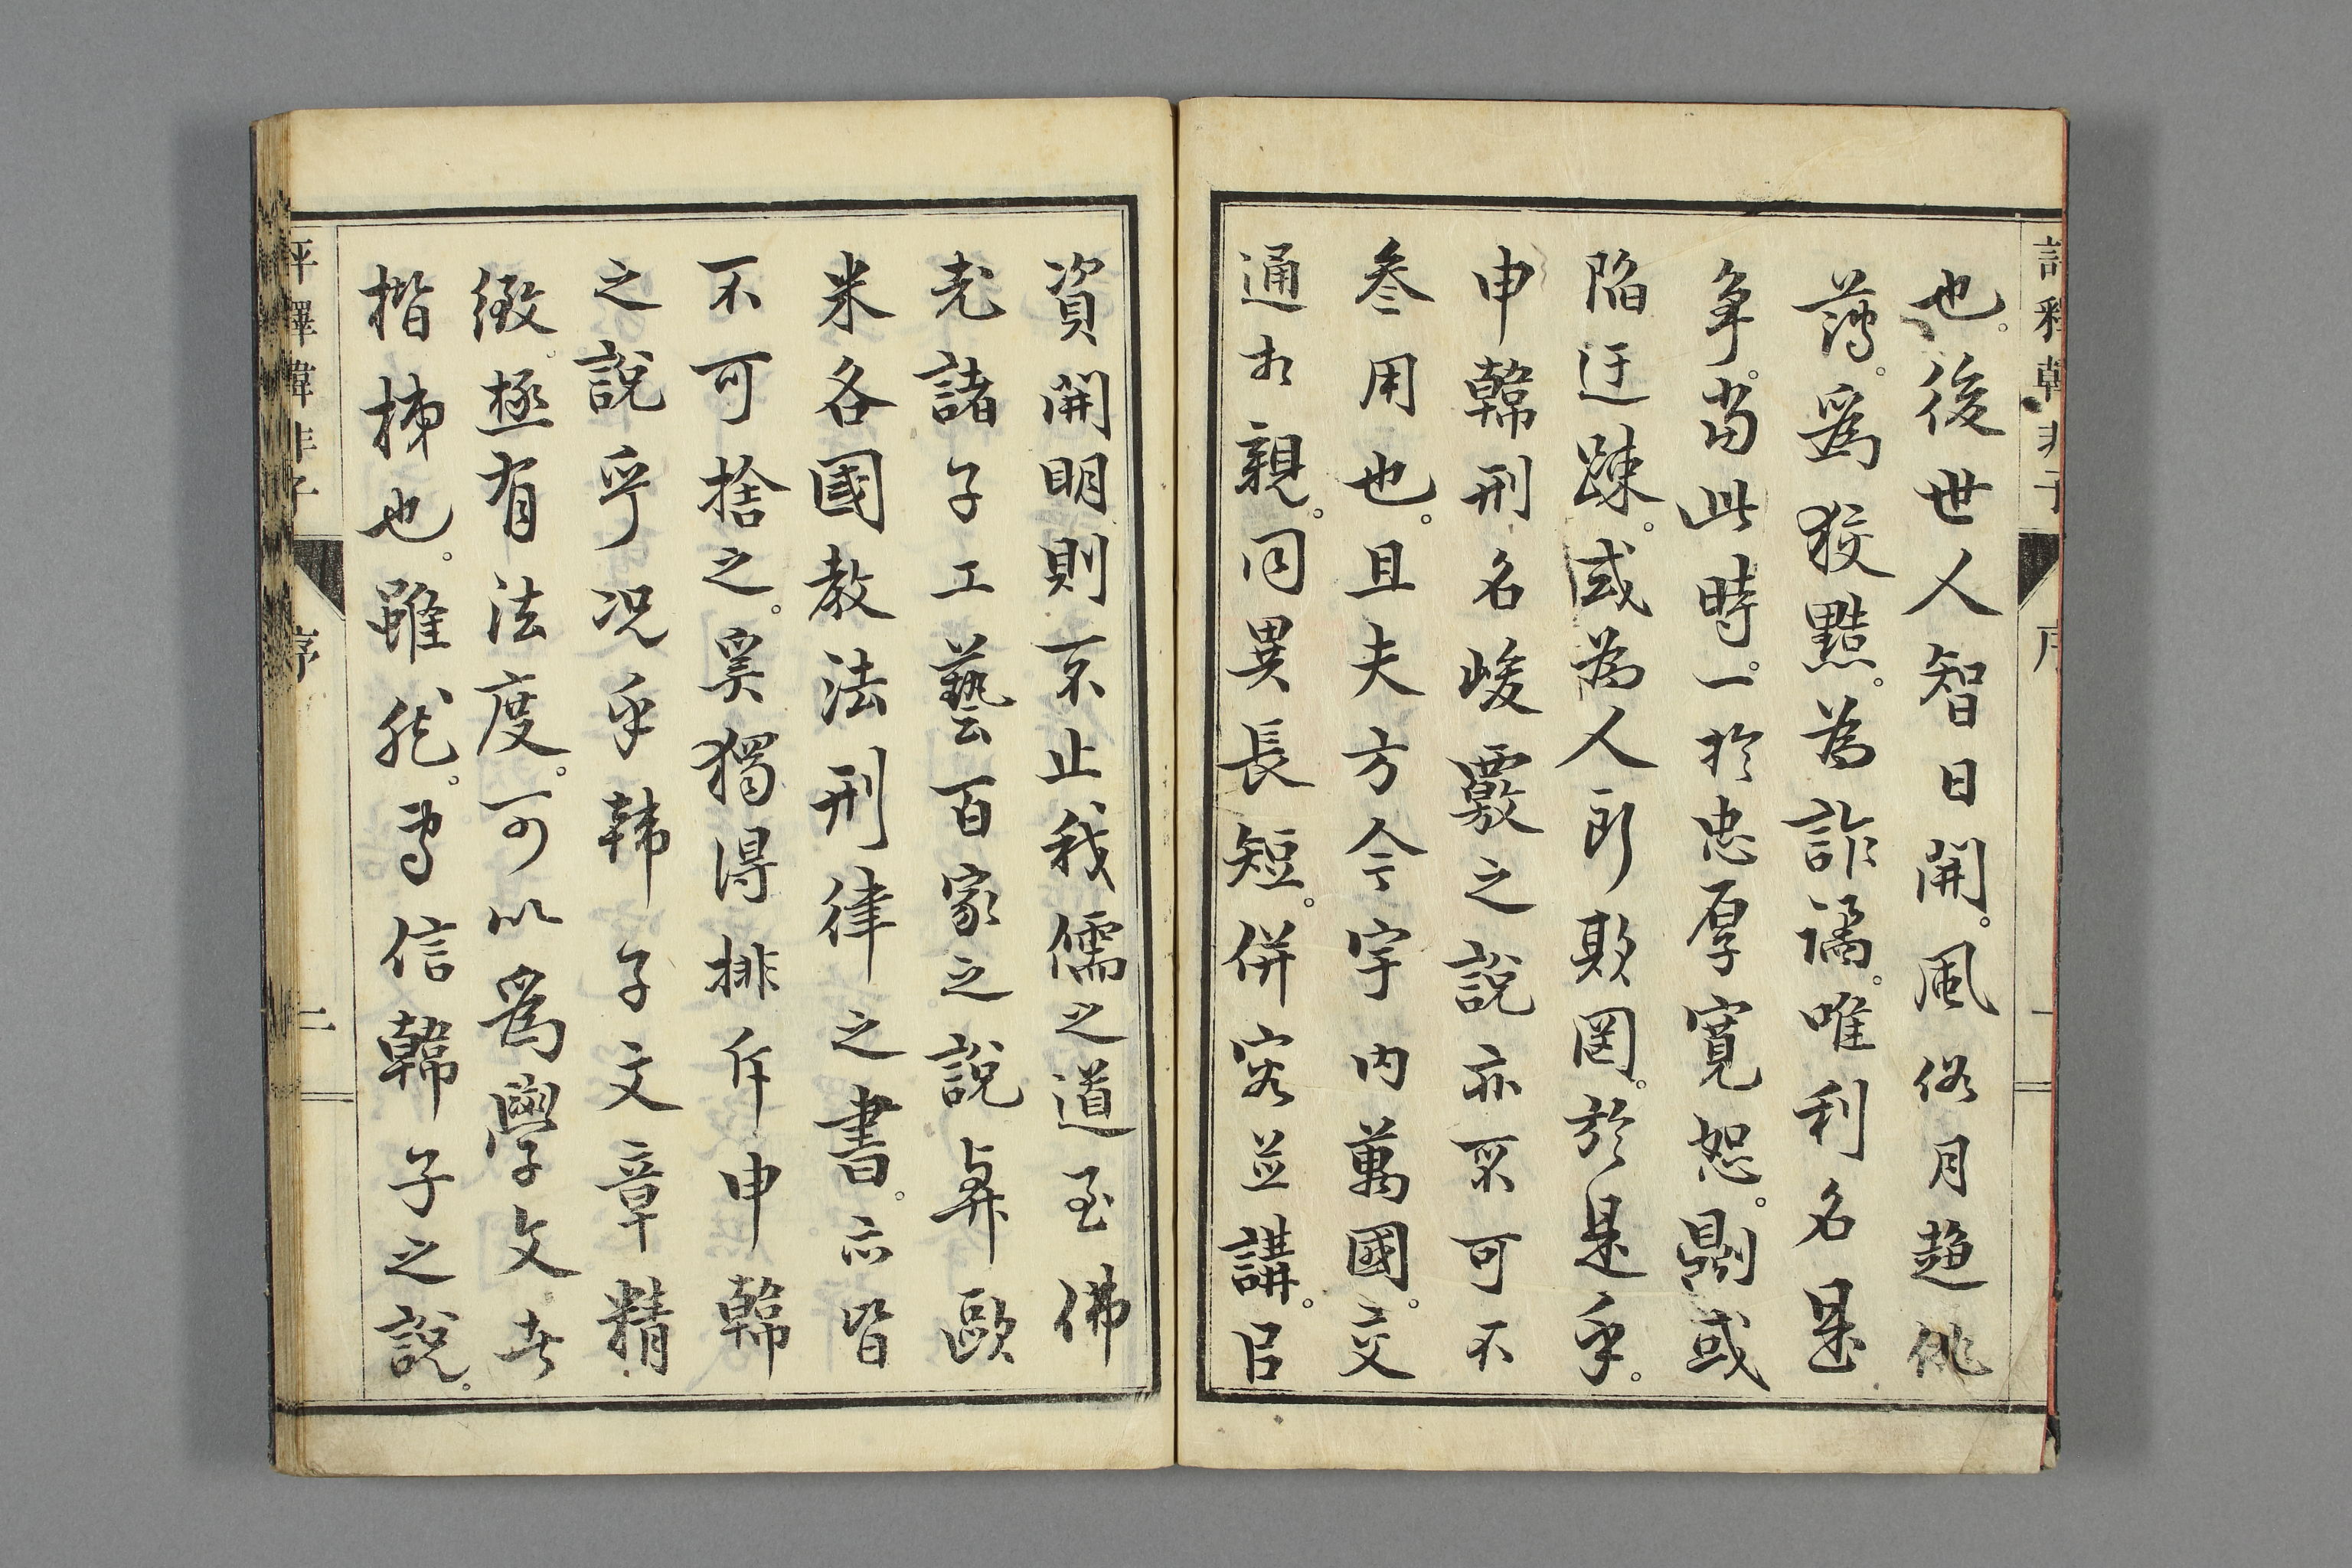 也。後世人智日開。風俗月趨佻
薄。爲狡黠。為詐譎。唯利名是
爭。當此時。一於忠厚寬恕。則或
陷迂疎。或為人所欺罔。於是乎。
申韓刑名峻覈之說亦不可不
叅用也。且夫方今宇内萬國。交
通相親。同異長短。併容並講。㠯
資開明則不止我儒之道至佛
老諸子工藝百家之說與歐
米各國教法刑律之書。亦皆
不可捨之。奚獨得排斥申韓
之說乎况乎韓子文章精
緻。極有法度。可以爲學文者
楷梯也。雖然。専信韓子之說。
評釋韓非子
序
二